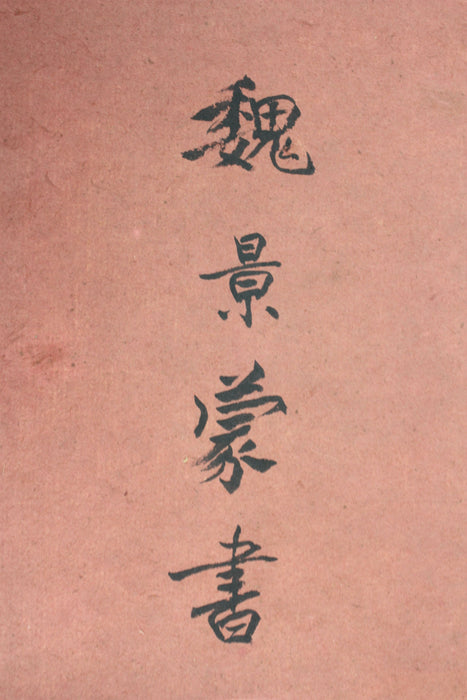 魏景蒙書